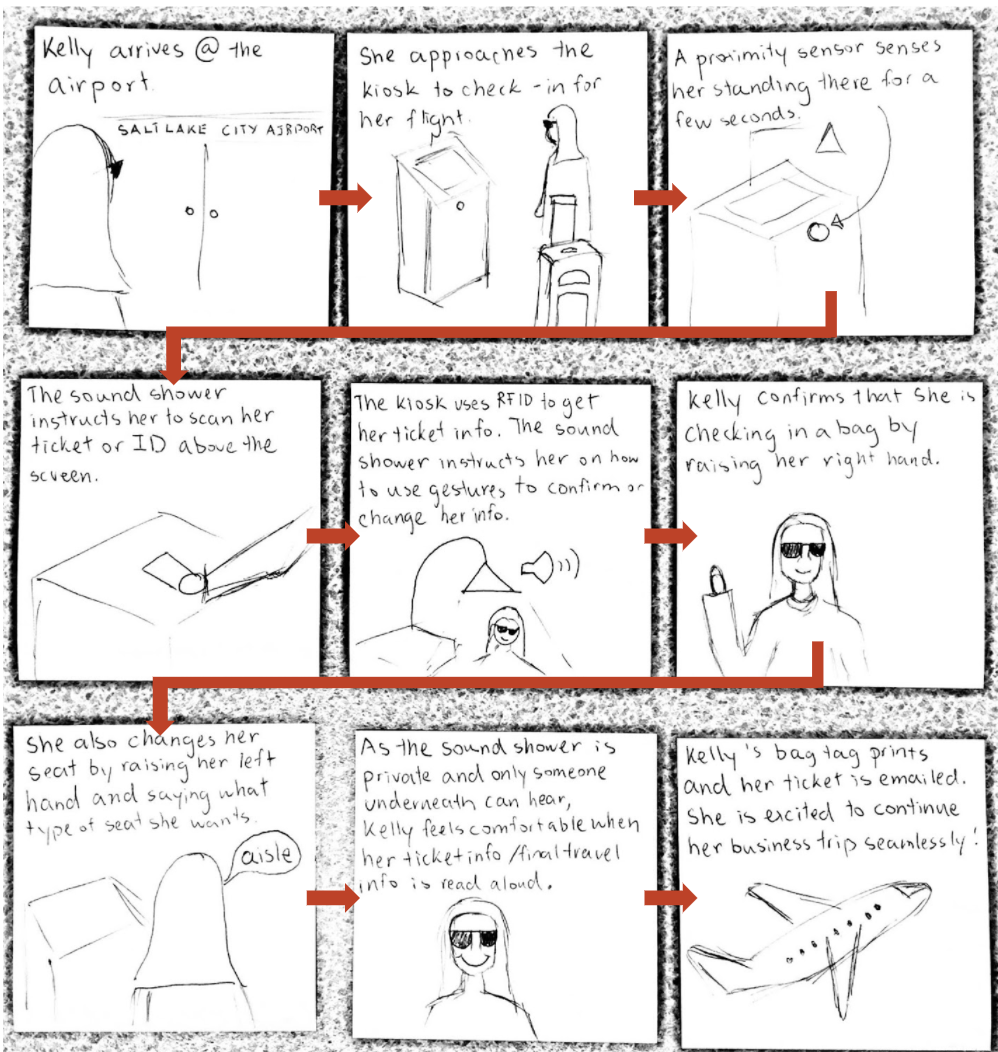 Kelly arrives @ the
airport.
SALT LAKE CITY AIRPORT
She approaches the
kiosk to check-in for
her flight.
A proximity sensor senses
her standing there for a
few seconds.
The sound shower
instructs her to scan her
ticket or ID above the
screen.
The kiosk uses RFID to get
her ticket info. The sound
shower instructs her on how
to use gestures to confirm or
change her info.
Kelly confirms that she is
checking in a bag by
raising her right hand.
She also changes her
seat by raising her left
hand and saying what
type of seat she wants.
aisle
As the sound shower is
private and only someone
underneath can hear,
Kelly feels comfortable when
her ticket info/final travel
info is read aloud.
Kelly's bag tag prints
and her ticket is emailed.
She is excited to continue
her business trip seamlessly!